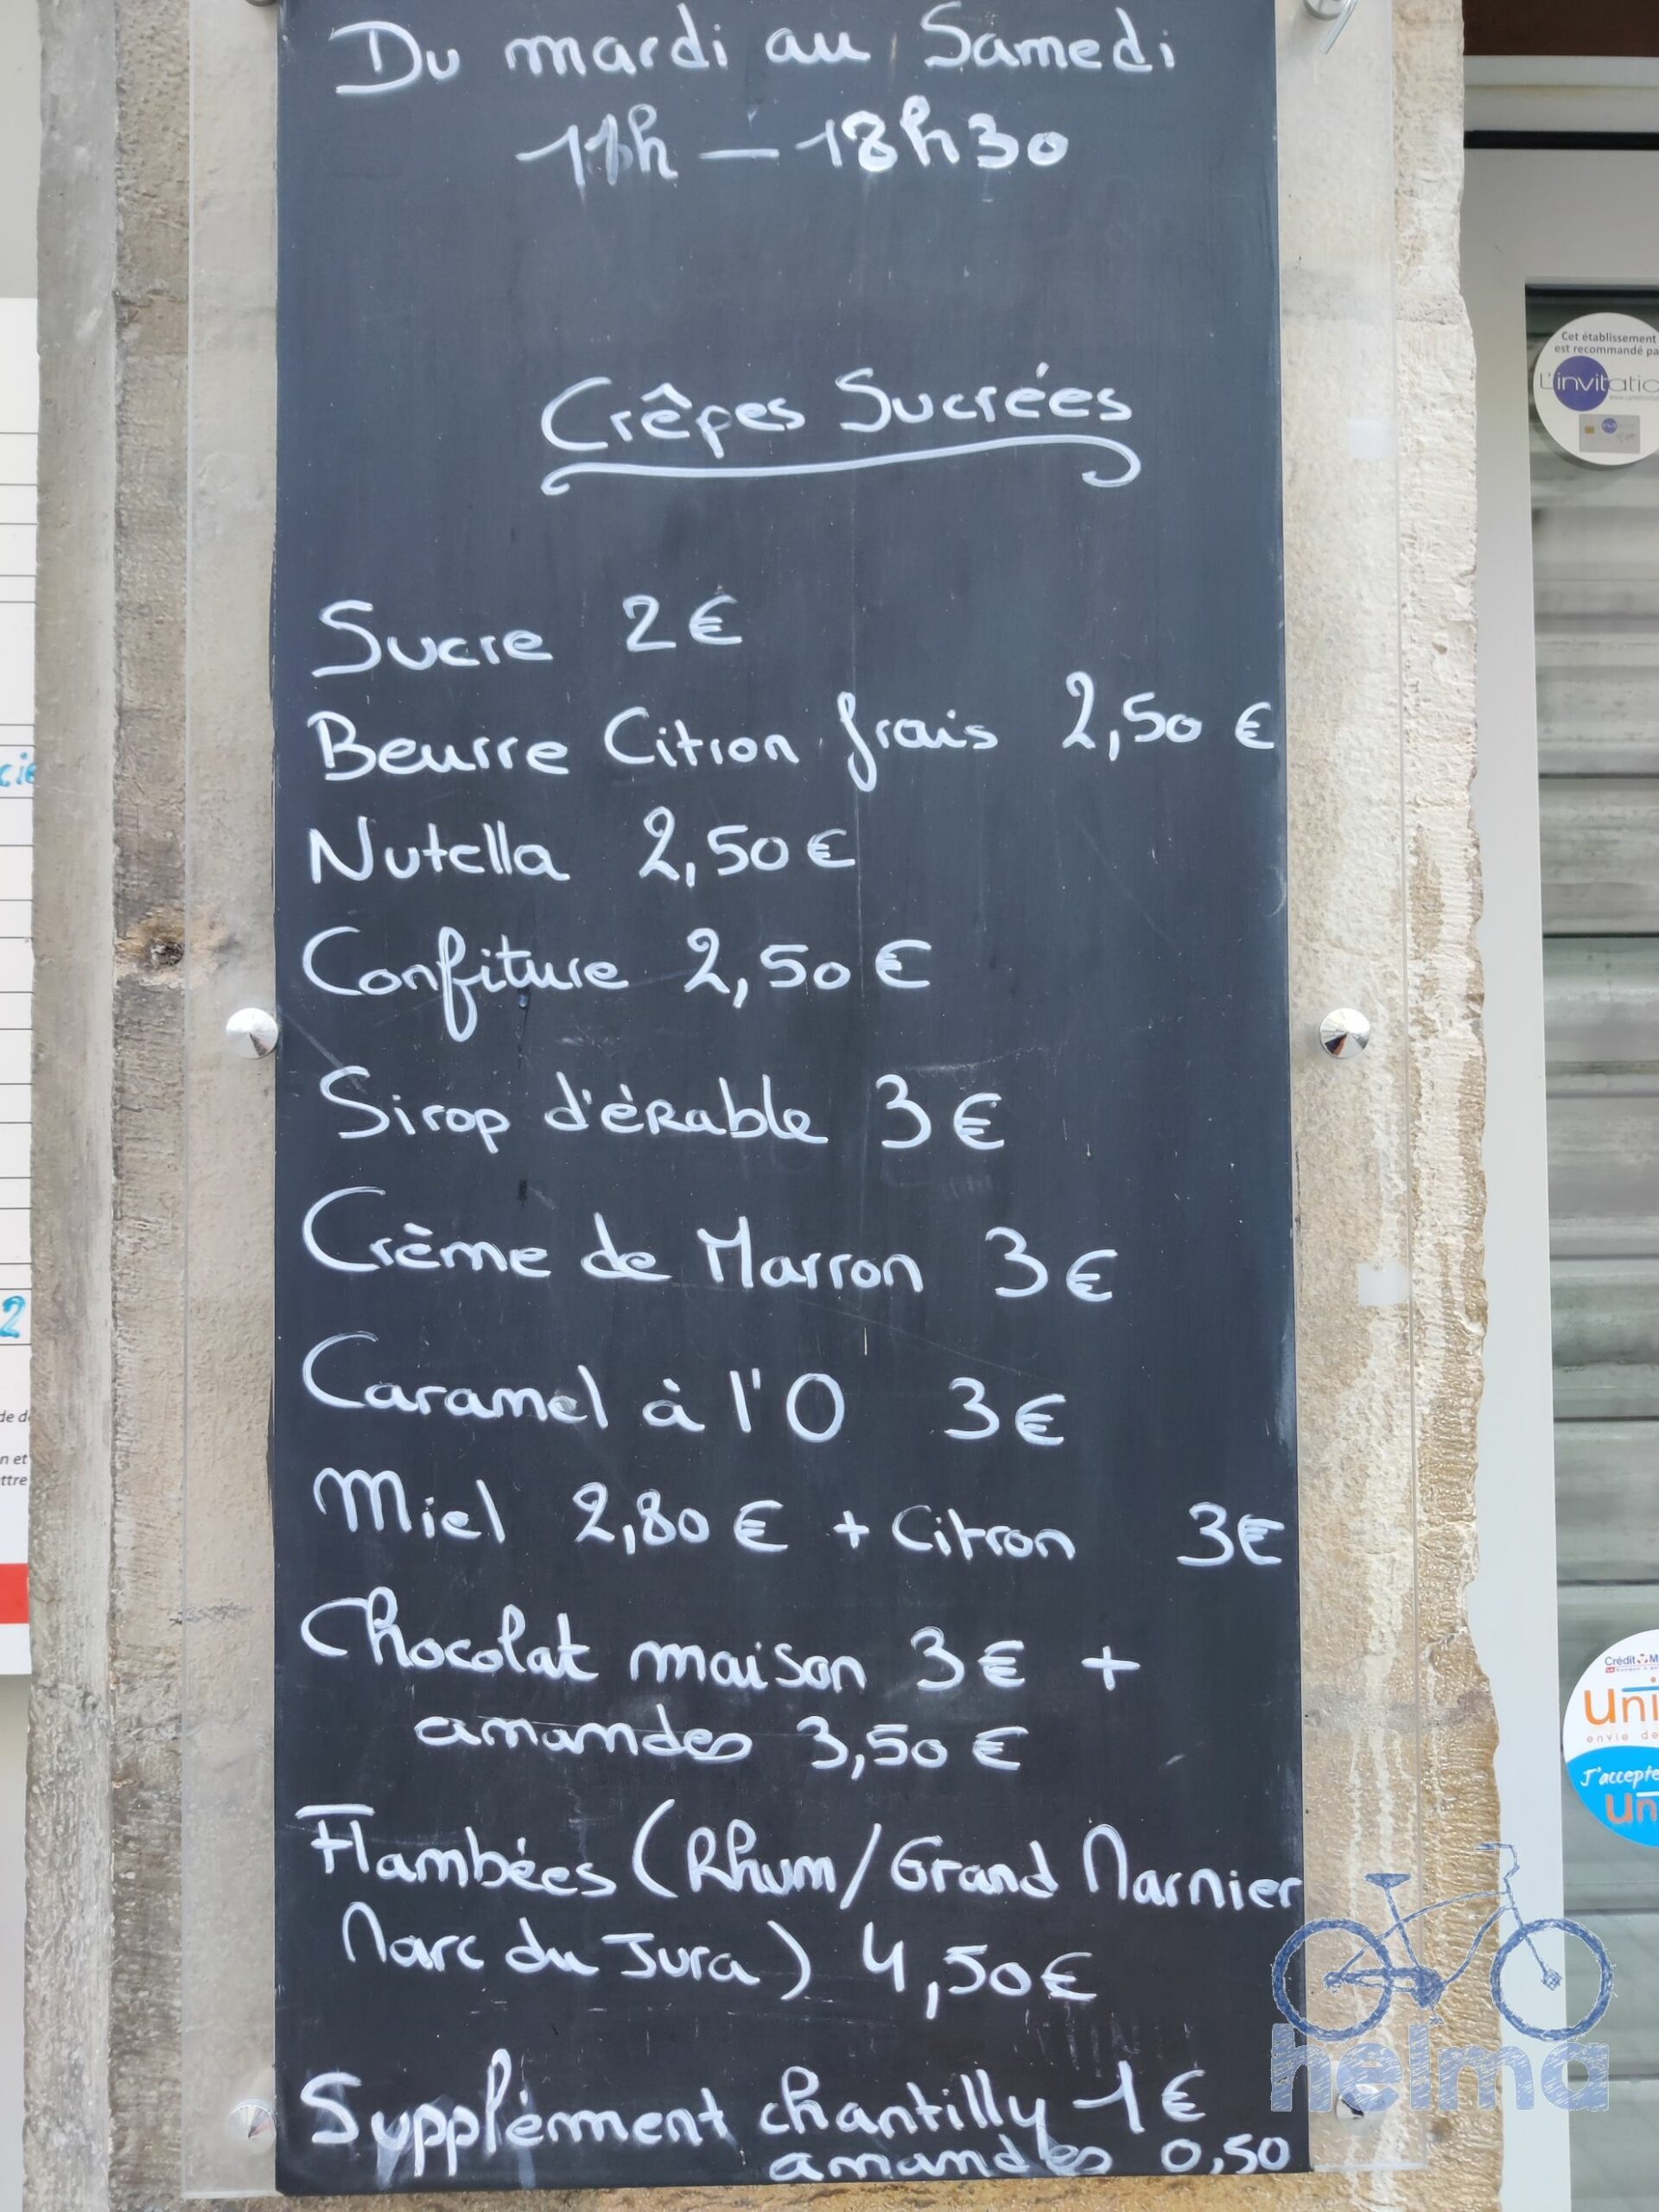 Du mardi au Samedi
11h – 18h30
Crêpes Sucrées
Sucre 2€
Beurre Citron frais 2,50 €
Nutella 2,50€
Confiture 2,50€
Sirop d'éRable 3€
Crème de Marron 3€
Caramel à l'O 3€
Miel 2,80€ + Citron 3€
Chocolat maison 3€ +
amandes 3,50€
Flambées (Rhum/Grand Marnier
Marc du Jura) 4,50€
Supplément chantilly 1€
amandes 0,50
Cet établissement
est recommandé pa
L'invitatio
Crédit M
uni
envie de
J'accepte
un
cie
2
de d
n et
ttre
helma